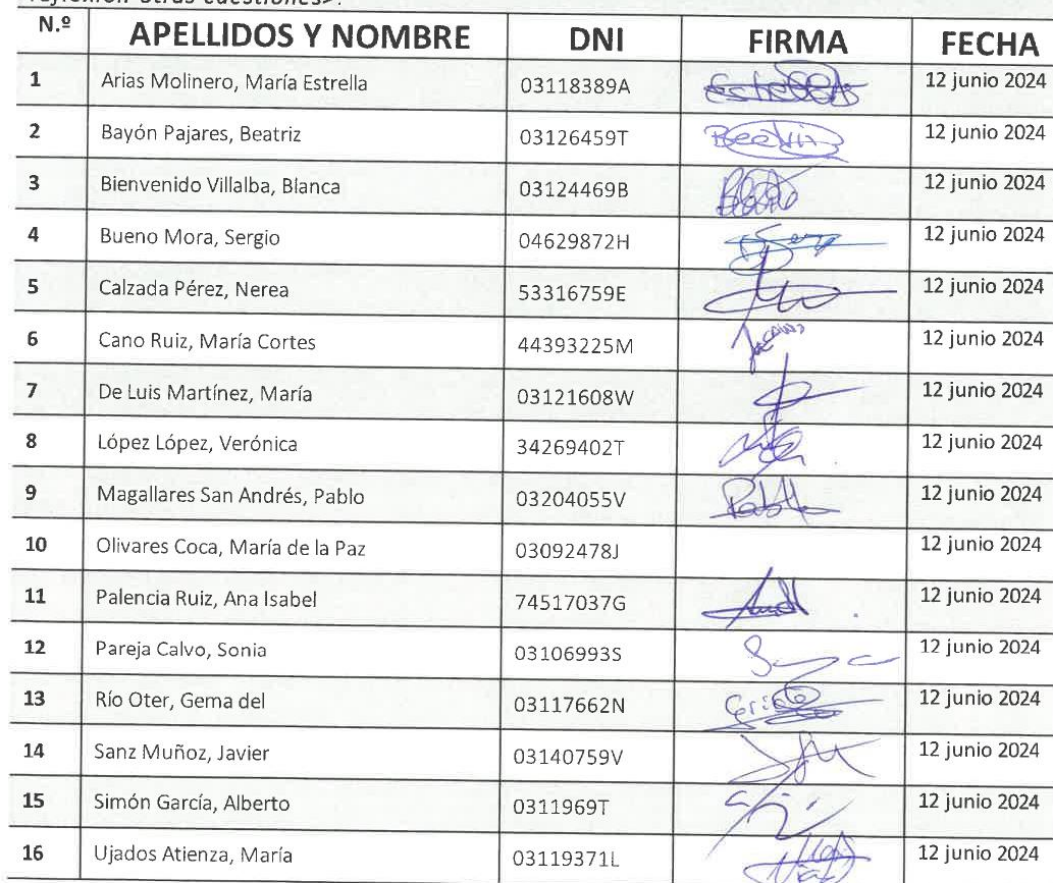 N.º APELLIDOS Y NOMBRE DNI FIRMA FECHA
1 Arias Molinero, María Estrella 03118389A Estrella 12 junio 2024
2 Bayón Pajares, Beatriz 03126459T Beatriz 12 junio 2024
3 Bienvenido Villalba, Blanca 03124469B 12 junio 2024
4 Bueno Mora, Sergio 04629872H 12 junio 2024
5 Calzada Pérez, Nerea 53316759E 12 junio 2024
6 Cano Ruiz, María Cortes 44393225M 12 junio 2024
7 De Luis Martínez, María 03121608W 12 junio 2024
8 López López, Verónica 34269402T 12 junio 2024
9 Magallares San Andrés, Pablo 03204055V 12 junio 2024
10 Olivares Coca, María de la Paz 03092478J 12 junio 2024
11 Palencia Ruiz, Ana Isabel 74517037G 12 junio 2024
12 Pareja Calvo, Sonia 03106993S 12 junio 2024
13 Río Oter, Gema del 03117662N 12 junio 2024
14 Sanz Muñoz, Javier 03140759V 12 junio 2024
15 Simón García, Alberto 0311969T 12 junio 2024
16 Ujados Atienza, María 03119371L 12 junio 2024